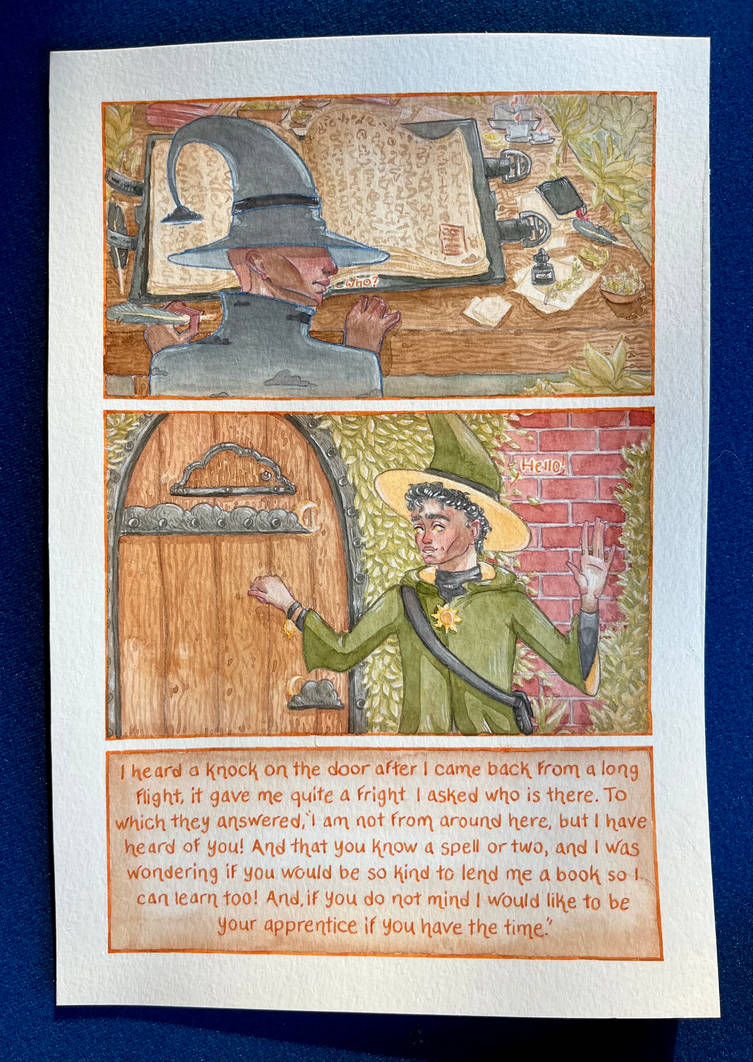 Who?
Hello!
I heard a knock on the door after I came back from a long
flight, it gave me quite a fright I asked who is there. To
which they answered, "I am not from around here, but I have
heard of you! And that you know a spell or two, and I was
wondering if you would be so kind to lend me a book so I
can learn too! And, if you do not mind I would like to be
your apprentice if you have the time."